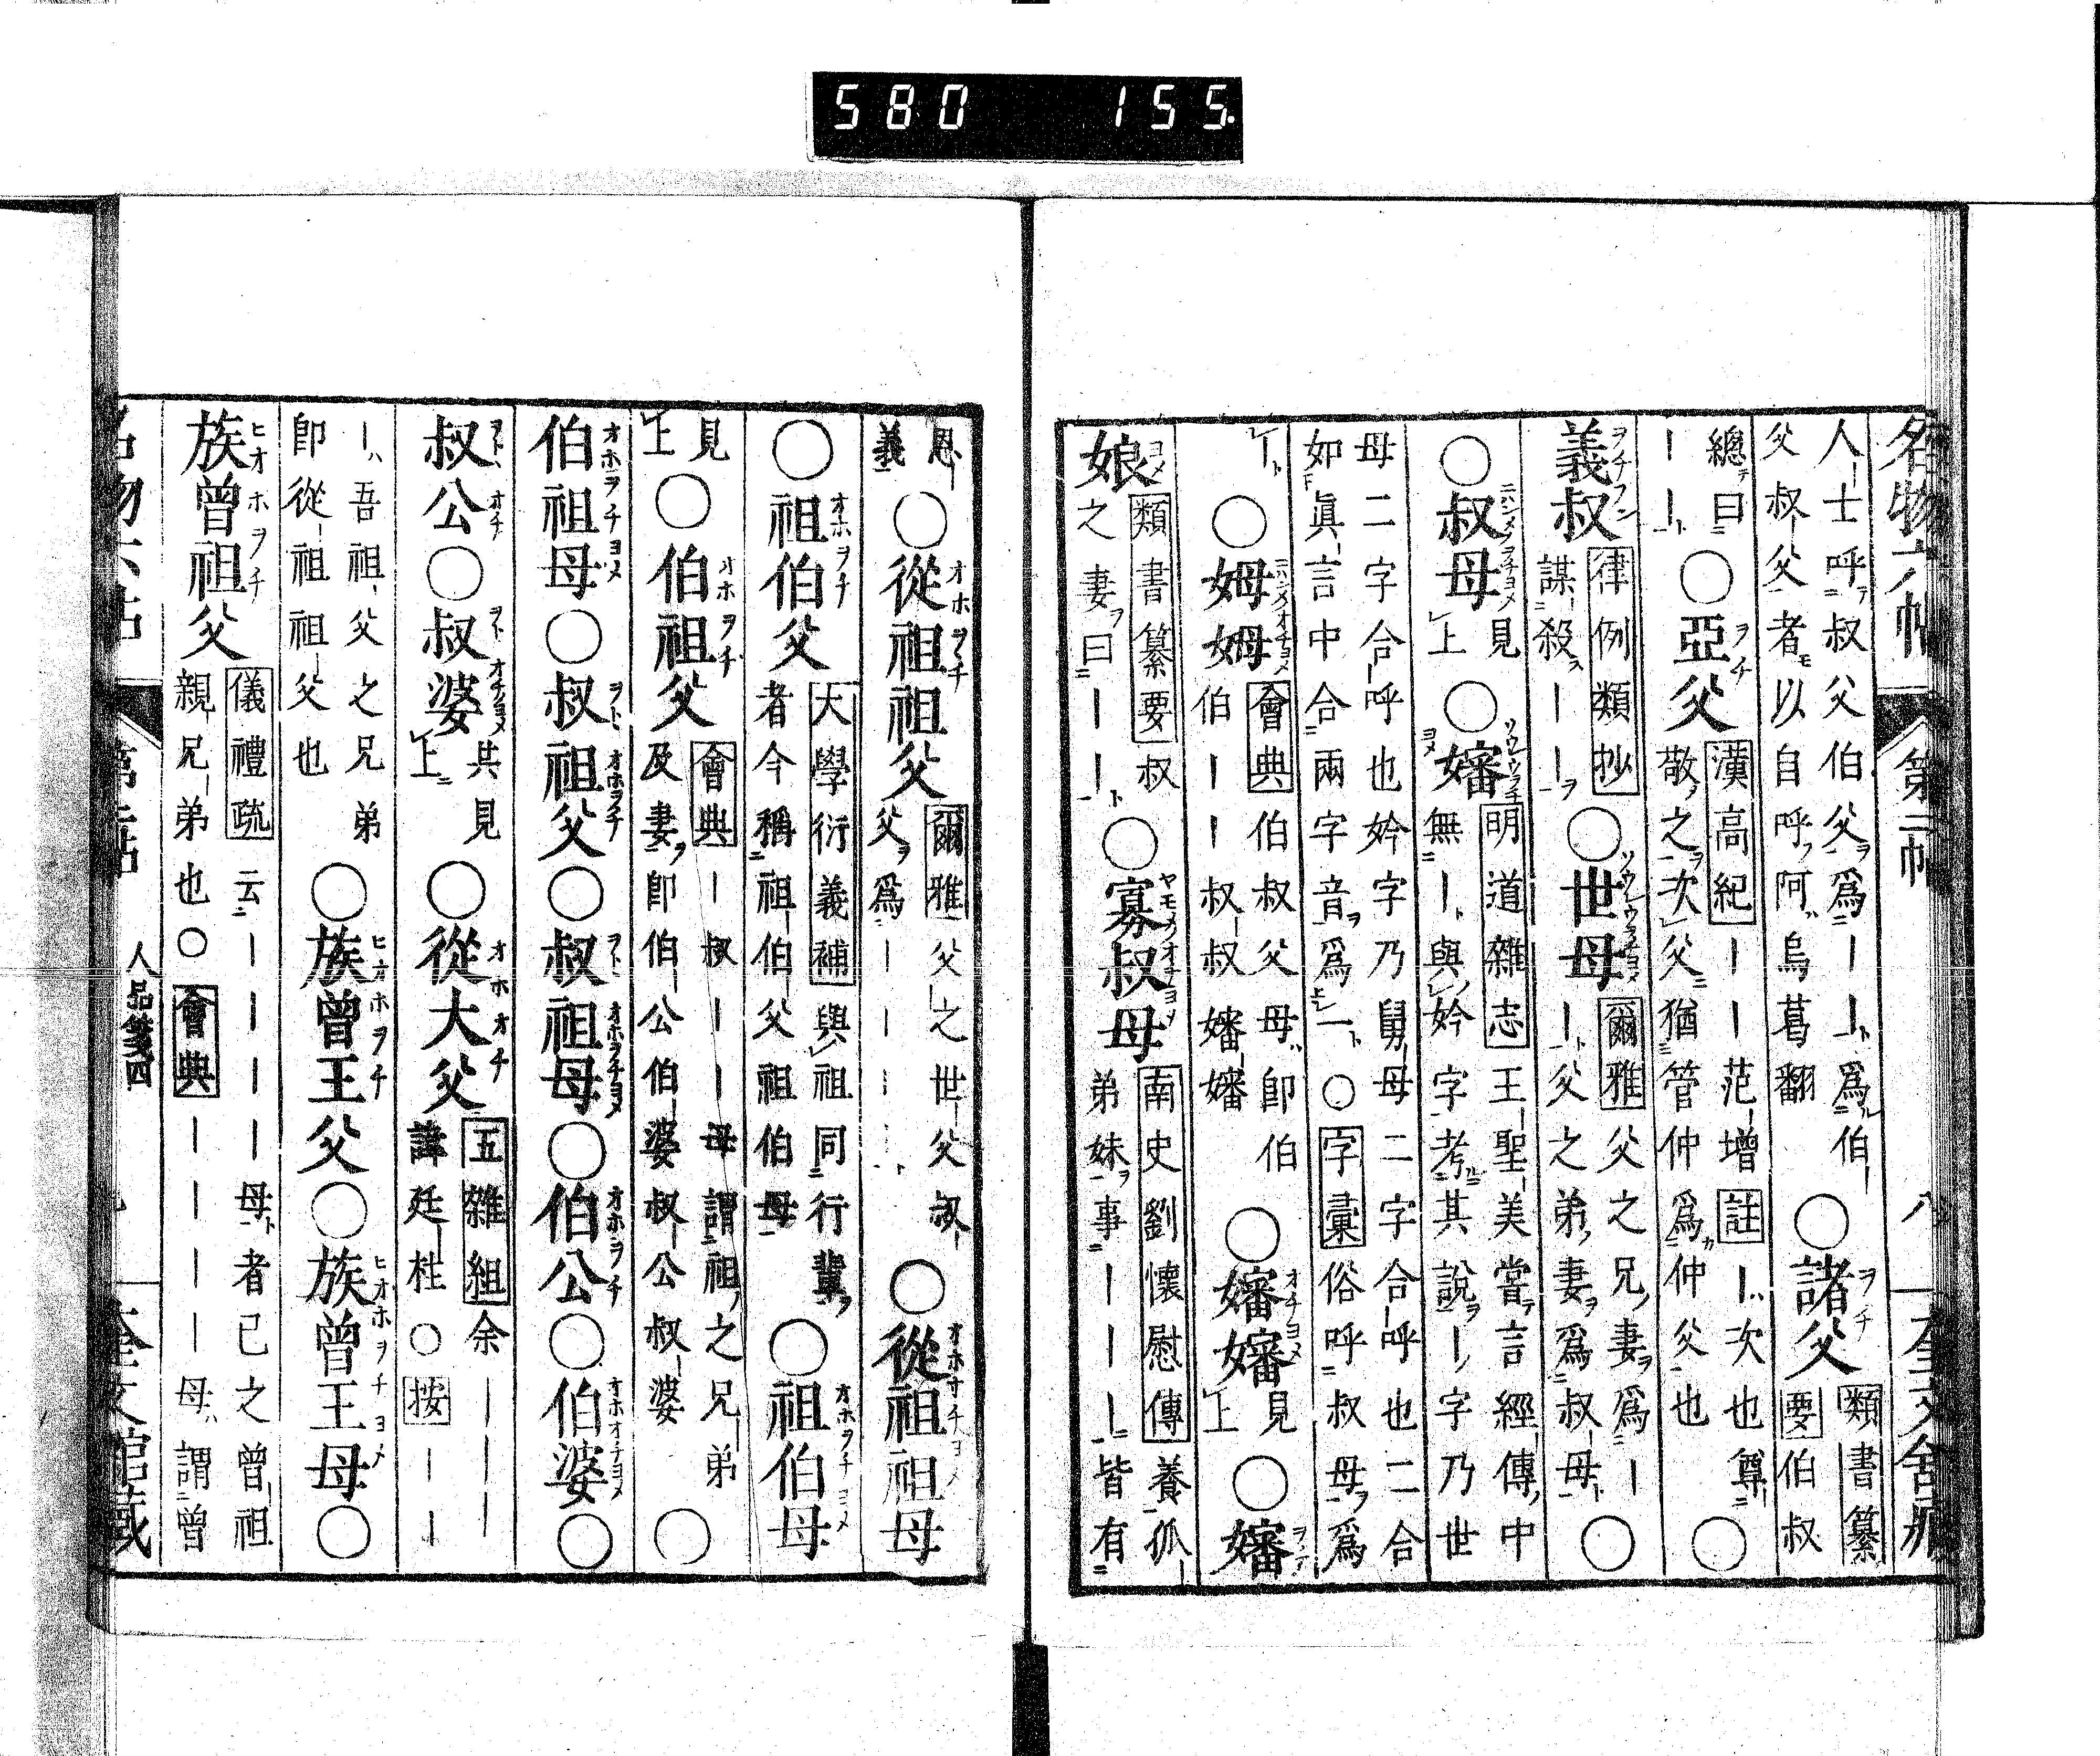 580 155.
名物六帖 第二帖 八
人士呼叔父伯父爲｜｜爲伯｜
父叔父者以自呼阿烏葛翻
○諸父ヲチ 類書纂
要 伯叔
總曰
｜｜
○亞父ヲチ 漢高紀 ｜｜范增 註 ｜次也尊
敬之次父猶管仲爲仲父也 ○
義叔 律例類抄
謀殺｜｜
○世母 爾雅 父之兄妻爲｜
｜父之弟妻爲叔母 ○
○叔母 見
上
○嬸 明道雜志 王聖美嘗言經傳中
無｜與妗字考其說｜字乃世
母二字合呼也妗字乃舅母二字合呼也二合
如眞言中合兩字音爲一○ 字彙 俗呼叔母爲
｜
○姆姆 會典 伯叔父母即伯
伯｜｜叔叔嬸嬸
○嬸嬸オチヨメ 見
上
○嬸
娘 類書纂要 叔
之妻曰｜｜
○寡叔母 南史劉懷慰傳 養孤
弟妹事｜｜｜皆有
恩
義
○從祖祖父 爾雅 父之世父叔
父爲｜｜｜｜
○從祖祖母
○祖伯父 大學衍義補 與祖同行輩
者今稱祖伯父祖伯母
○祖伯母
見
上
○伯祖父 會典 ｜叔｜｜母謂祖之兄弟
及妻即伯公伯婆叔公叔婆 ○
伯祖母 ○叔祖父 ○叔祖母 ○伯公 ○伯婆 ○
叔公 ○叔婆 共見
上
○從大父 五雜組 余｜｜｜
諱廷柱 ○ 按 ｜｜
｜吾祖父之兄弟
即從祖祖父也
○族曾王父 ○族曾王母 ○
族曾祖父 儀禮疏 云｜｜｜｜母者己之曾祖
親兄弟也○ 會典 ｜｜｜｜母謂曾
人品箋四